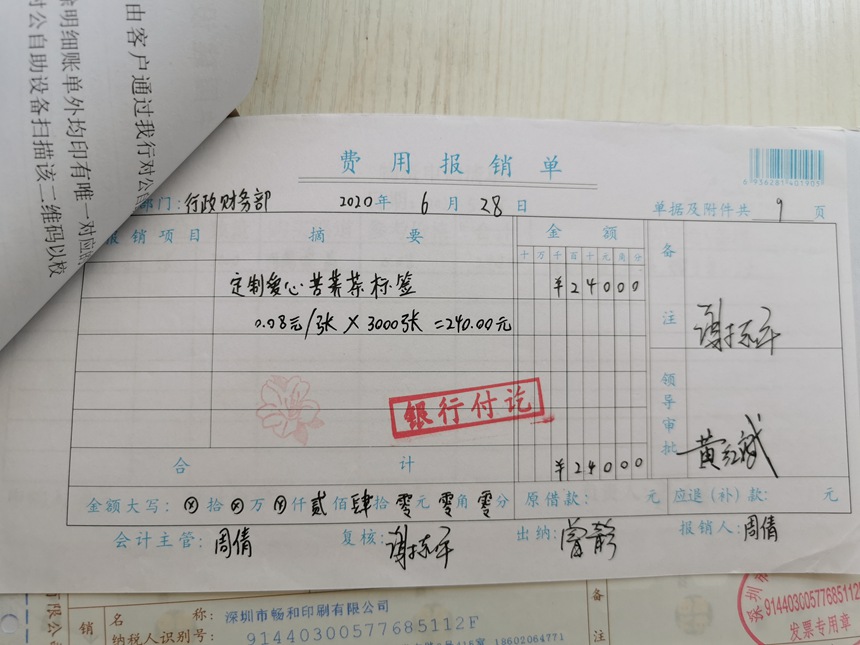 由客户通过我行对公
除明细账单外均印有唯一对应
对公自助设备扫描该二维码以校
费用报销单
6936281401905
部门:行政财务部 2020年 6月 28日 单据及附件共 9 页
报销项目 摘要 金额 备注
十万千百十元角分
定制爱心苦菜茶标签 ¥24000
0.08元/张 × 3000张 =240.00元
银行付讫
领导审批
合计 ¥24000
金额大写: ⊗拾⊗万⊗仟贰佰肆拾零元零角零分 原借款: 元 应退(补)款: 元
会计主管:周倩 复核: 出纳: 报销人:周倩
有限公
销
名称: 深圳市畅和印刷有限公司
纳税人识别号: 91440300577685112F
18602064771
备注
91440300577685112
发票专用章